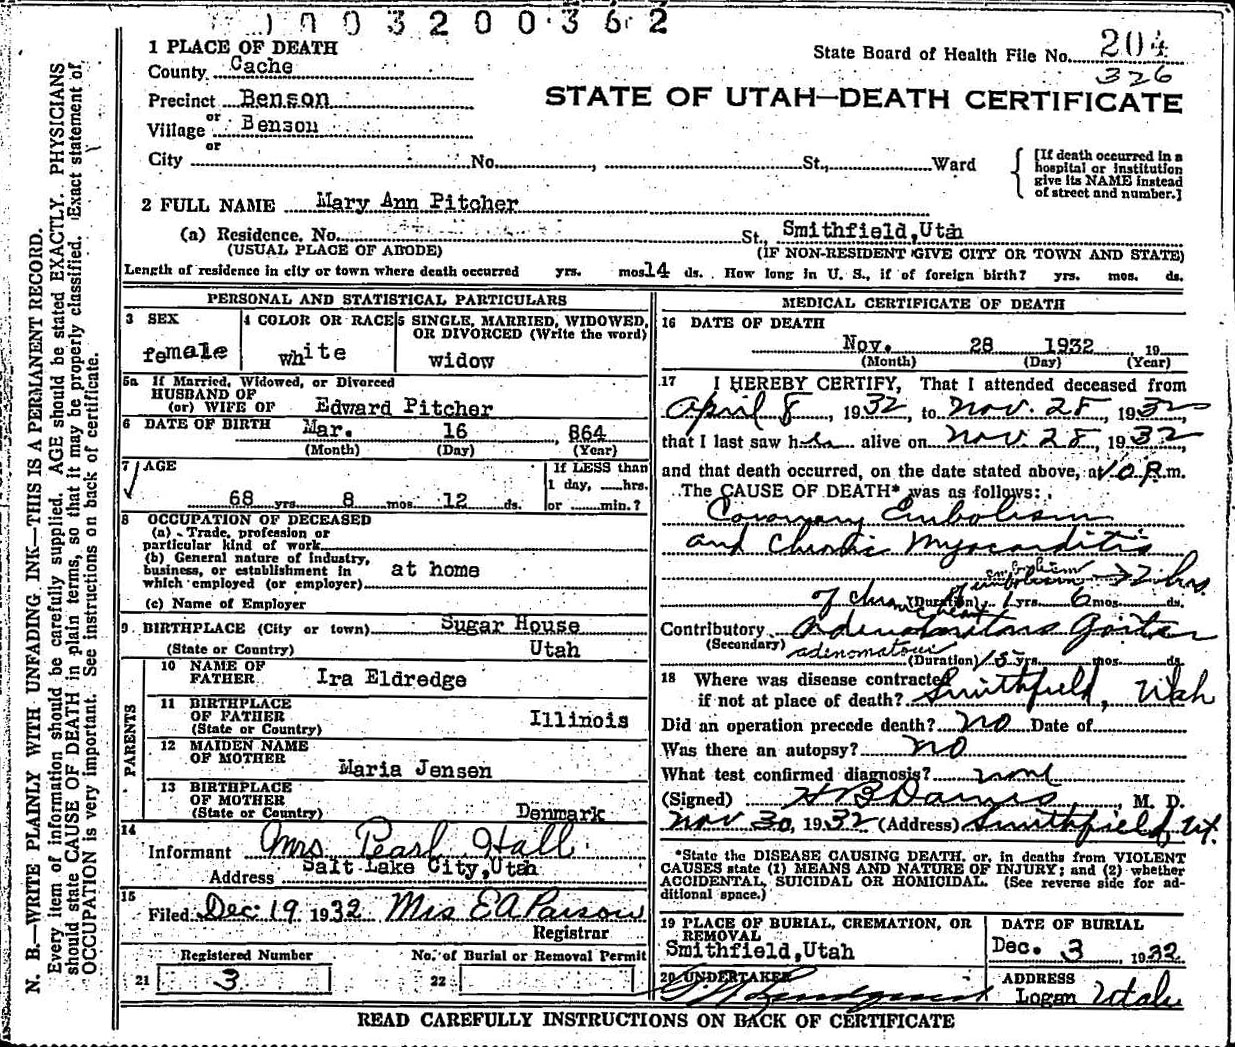 1003200362
1 PLACE OF DEATH
State Board of Health File No. 204
326
County Cache
STATE OF UTAH—DEATH CERTIFICATE
Precinct Benson
or
Village Benson
or
City No. , St., Ward
[If death occurred in a hospital or institution give its NAME instead of street and number.]
2 FULL NAME Mary Ann Pitcher
(a) Residence. No. St., Smithfield,Utah
(USUAL PLACE OF ABODE) (IF NON-RESIDENT GIVE CITY OR TOWN AND STATE)
Length of residence in city or town where death occurred yrs. mos. 14 ds. How long in U. S., if of foreign birth? yrs. mos. ds.
PERSONAL AND STATISTICAL PARTICULARS
3 SEX
female
4 COLOR OR RACE
white
5 SINGLE, MARRIED, WIDOWED, OR DIVORCED (Write the word)
widow
5a If Married, Widowed, or Divorced
HUSBAND OF
(or) WIFE OF Edward Pitcher
6 DATE OF BIRTH Mar. 16 , 864
(Month) (Day) (Year)
7 AGE
68 yrs. 8 mos. 12 ds.
If LESS than
1 day, ___hrs.
or ___min.?
8 OCCUPATION OF DECEASED
(a) Trade, profession or
particular kind of work
(b) General nature of Industry,
business, or establishment in
which employed (or employer) at home
(c) Name of Employer
9 BIRTHPLACE (City or town) Sugar House
(State or Country) Utah
PARENTS
10 NAME OF
FATHER Ira Eldredge
11 BIRTHPLACE
OF FATHER
(State or Country) Illinois
12 MAIDEN NAME
OF MOTHER Maria Jensen
13 BIRTHPLACE
OF MOTHER
(State or Country) Denmark
14
Informant Mrs Pearl Hall
Address Salt Lake City,Utah
15
Filed Dec 19 1932 Mrs E A Parson
Registrar
Registered Number No. of Burial or Removal Permit
21 3 22
MEDICAL CERTIFICATE OF DEATH
16 DATE OF DEATH
Nov. 28 1932 19
(Month) (Day) (Year)
17 I HEREBY CERTIFY, That I attended deceased from
April 8, 1932 to Nov. 28, 1932
that I last saw her alive on Nov 28, 1932
and that death occurred, on the date stated above, at 10 P.m.
The CAUSE OF DEATH* was as follows:
Coronary Embolism
and Chronic Myocarditis
embolism
of embolism → 2 hrs.
of chronic heart (Duration) 1 yrs. 6 mos. ds.
Contributory Goiter
(Secondary) adenomatous
(Duration) 15 yrs. mos. ds
18 Where was disease contracted
if not at place of death? Smithfield, Utah
Did an operation precede death? no Date of
Was there an autopsy? no
What test confirmed diagnosis? none
(Signed) , M. D.
Nov 30, 1932 (Address) Smithfield, Ut.
*State the DISEASE CAUSING DEATH, or, in deaths from VIOLENT
CAUSES state (1) MEANS AND NATURE OF INJURY; and (2) whether
ACCIDENTAL, SUICIDAL OR HOMICIDAL. (See reverse side for ad-
ditional space.)
19 PLACE OF BURIAL, CREMATION, OR
REMOVAL
Smithfield,Utah
DATE OF BURIAL
Dec. 3, 1932
20 UNDERTAKER
ADDRESS
Logan Utah
READ CAREFULLY INSTRUCTIONS ON BACK OF CERTIFICATE
N. B.—WRITE PLAINLY WITH UNFADING INK—THIS IS A PERMANENT RECORD.
Every item of information should be carefully supplied. AGE should be stated EXACTLY. PHYSICIANS
should state CAUSE OF DEATH in plain terms, so that it may be properly classified. Exact statement of
OCCUPATION is very important. See instructions on back of certificate.